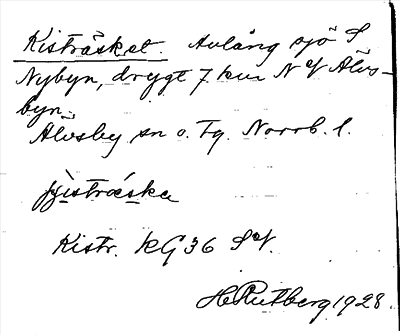 Kisträsket. Avlång sjö S
Nybyn, drygt 7 km N of Älvs-
byn.
Älvsby sn o. Tg. Norrb. l.
Kistr. KG 36 SV.
H Rutberg 1928.